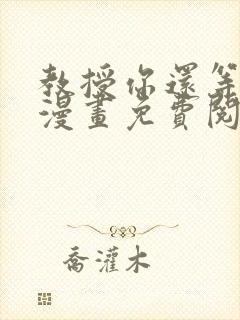 教授你還等
漫畫免費閱
喬灌木